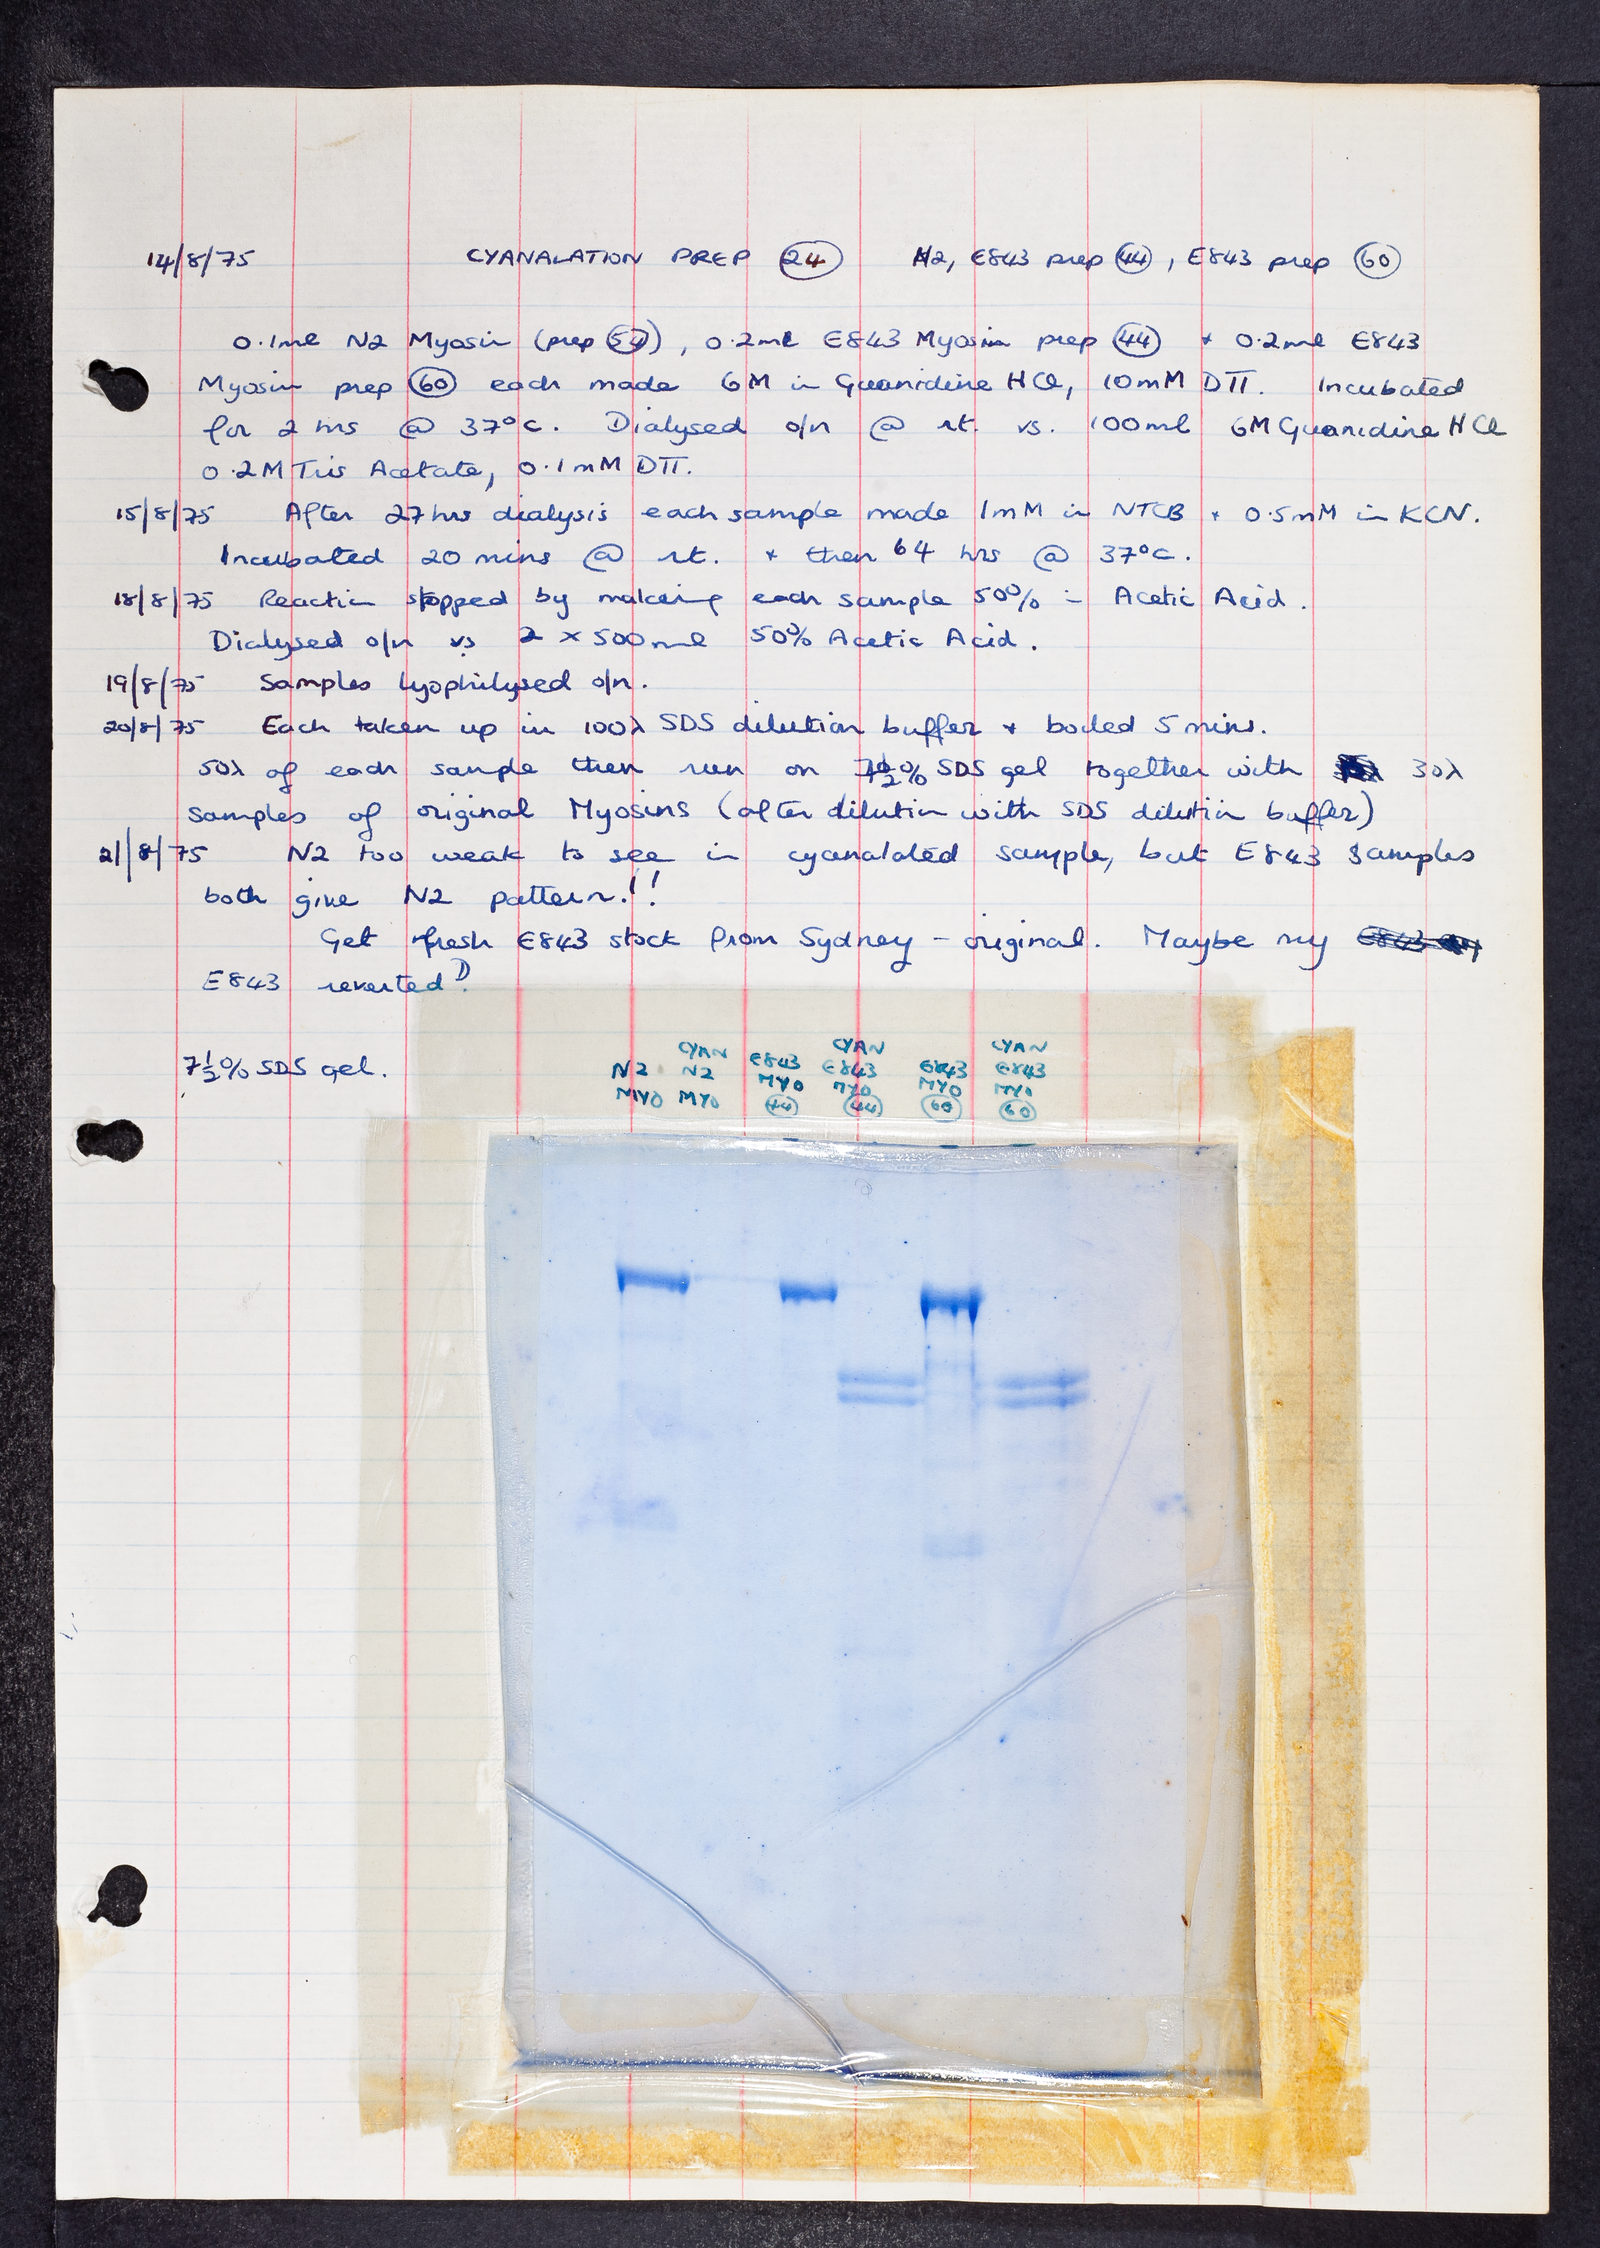 14/8/75 CYANALATION PREP 24 N2, E843 prep 44, E843 prep 60
0.1ml N2 Myosin (prep 54), 0.2ml E843 Myosin prep 44 + 0.2ml E843
Myosin prep 60 each made 6M in Guanidine HCl, 10mM DTT. Incubated
for 2 hrs @ 37°C. Dialysed o/n @ rt. vs. 100ml 6M Guanidine HCl
0.2M Tris Acetate, 0.1mM DTT.
15/8/75 After 27hrs dialysis each sample made 1mM in NTCB + 0.5mM in KCN.
Incubated 20 mins @ rt. + then 64 hrs @ 37°C.
18/8/75 Reaction stopped by making each sample 50% in Acetic Acid.
Dialysed o/n vs 2 x 500ml 50% Acetic Acid.
19/8/75 Samples lyophilysed o/n.
20/8/75 Each taken up in 100λ SDS dilution buffer + boiled 5 mins.
50λ of each sample then run on 7½% SDS gel together with 30λ
samples of original Myosins (after dilution with SDS dilution buffer)
21/8/75 N2 too weak to see in cyanalated sample, but E843 samples
both give N2 pattern!!
Get fresh E843 stock from Sydney - original. Maybe my
E843 reverted?
7½% SDS gel.
N2 MYO
CYAN N2 MYO
E843 MYO 44
CYAN E843 MYO 44
E843 MYO 60
CYAN E843 MYO 60